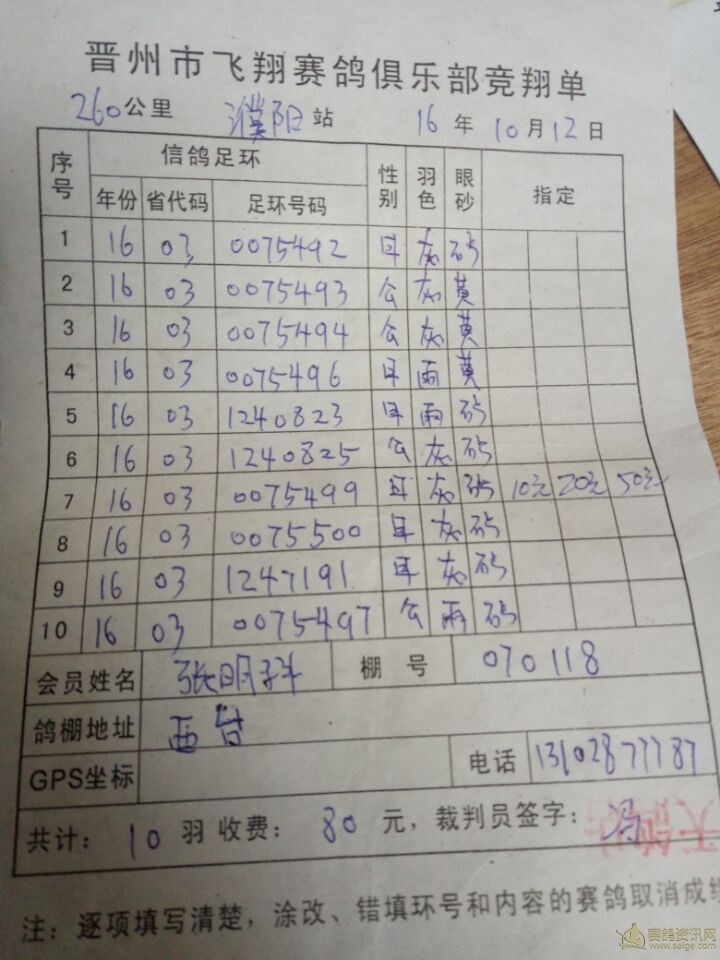 晋州市飞翔赛鸽俱乐部竞翔单
260公里 濮阳站 16年10月12日
序号 信鸽足环 性别 羽色 眼砂 指定
年份 省代码 足环号码
1 16 03 0075492 母 灰 砂
2 16 03 0075493 公 灰 黄
3 16 03 0075494 公 灰 黄
4 16 03 0075496 母 雨 黄
5 16 03 1240823 母 雨 砂
6 16 03 1240825 公 灰 砂
7 16 03 0075499 母 灰 砂 10元 20元 50元
8 16 03 0075500 母 灰 砂
9 16 03 1247191 母 灰 砂
10 16 03 0075497 公 雨 砂
会员姓名 张明科 棚号 070118
鸽棚地址 西台
GPS坐标 电话 13102877787
共计：10羽 收费：80元，裁判员签字：冯
注：逐项填写清楚，涂改、错填环号和内容的赛鸽取消成绩
赛鸽资讯网
www.saige.com